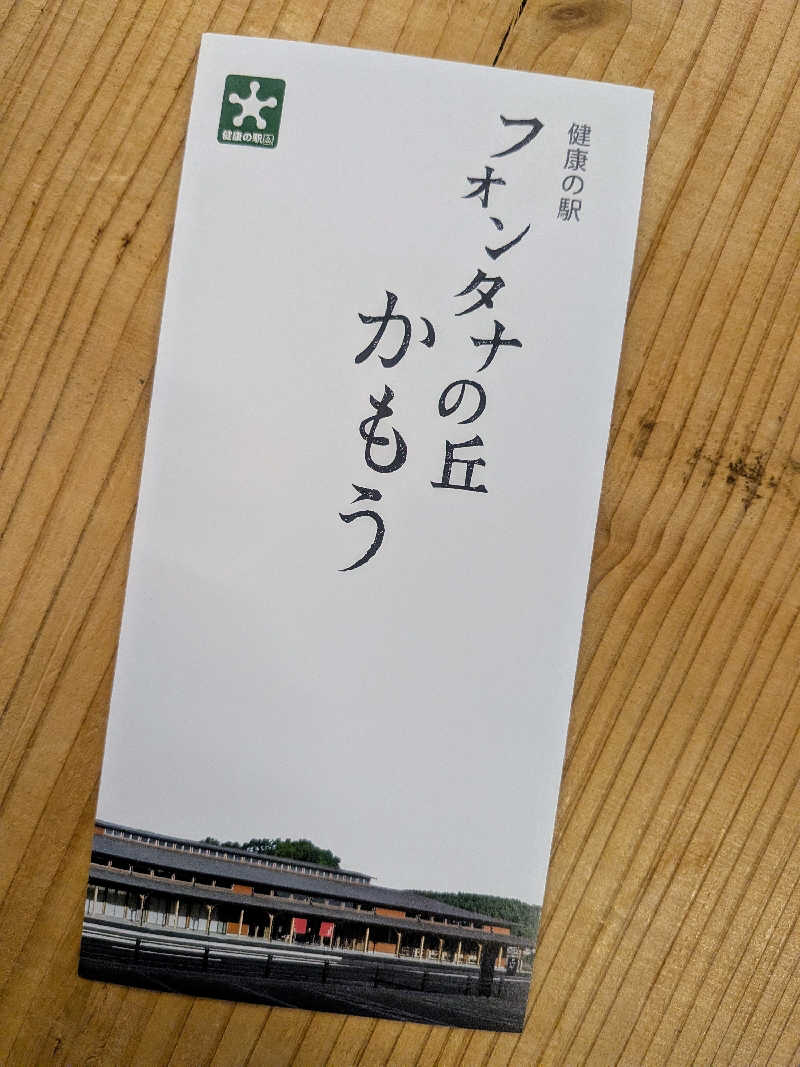 健康の駅
フォンタナの丘
かもう
健康の駅